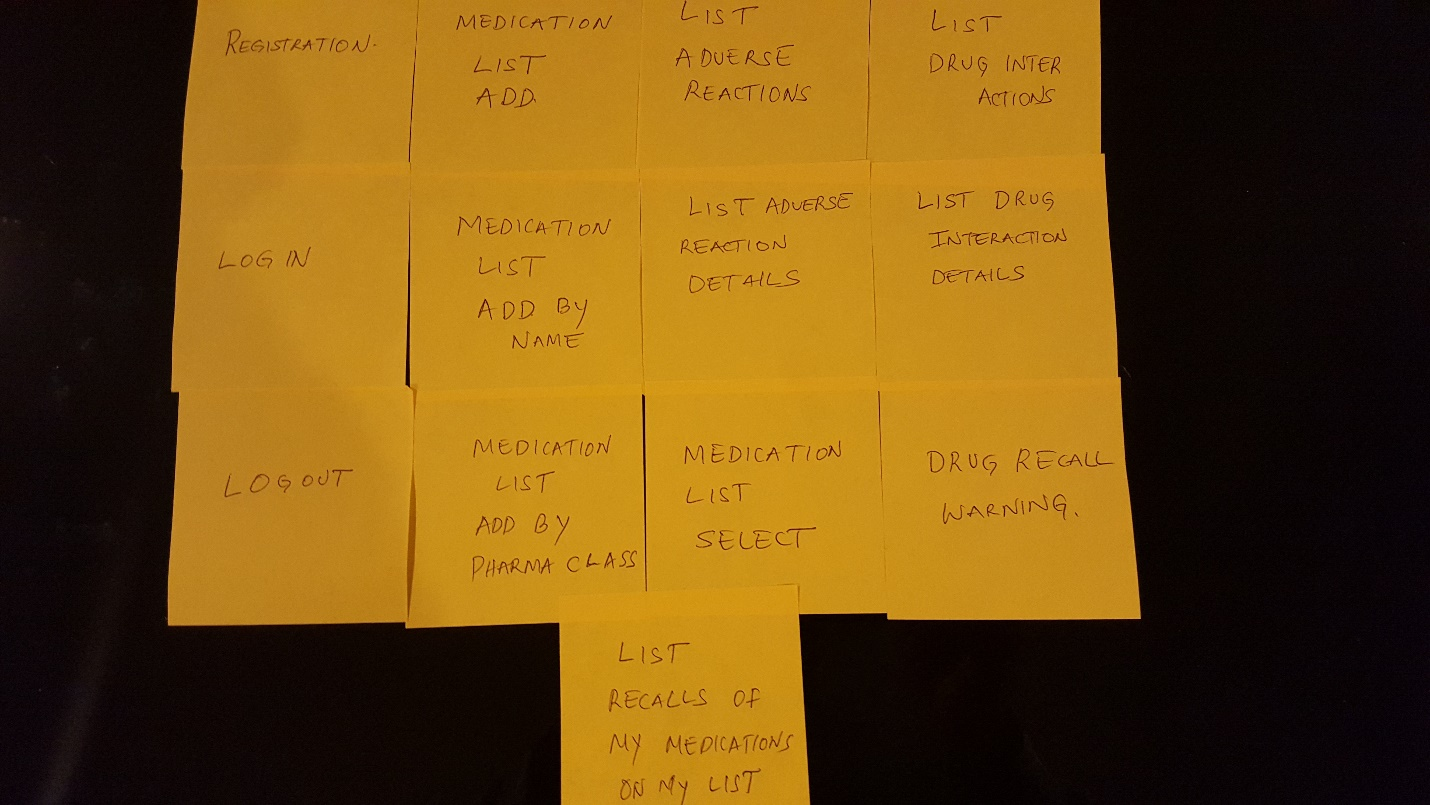 REGISTRATION.
MEDICATION
LIST
ADD.
LIST
ADVERSE
REACTIONS
LIST
DRUG INTER
ACTIONS
LOG IN
MEDICATION
LIST
ADD BY
NAME
LIST ADVERSE
REACTION
DETAILS
LIST DRUG
INTERACTION
DETAILS
LOGOUT
MEDICATION
LIST
ADD BY
PHARMA CLASS
MEDICATION
LIST
SELECT
DRUG RECALL
WARNING.
LIST
RECALLS OF
MY MEDICATIONS
ON MY LIST